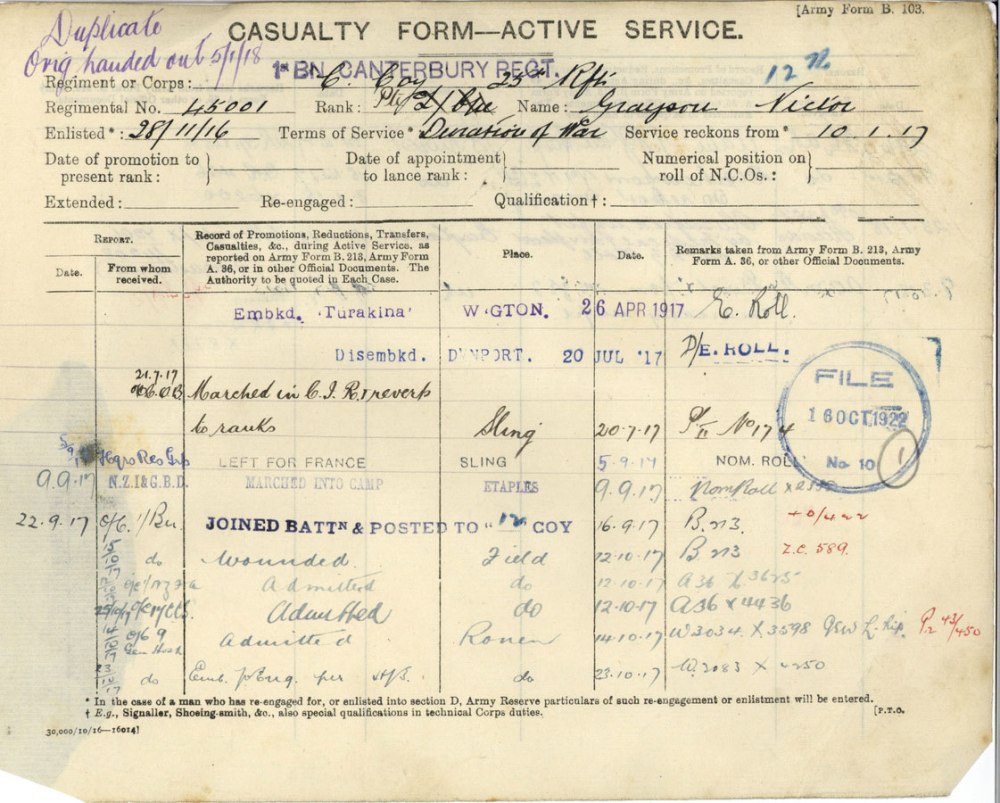 [Army Form B. 103.
Duplicate
Orig handed out 5/1/18
CASUALTY FORM—ACTIVE SERVICE.
1st BN. CANTERBURY REGT.
Regiment or Corps: C. Coy 25th Rfts 12th
Regimental No. 45001 Rank: Name: Grayson Victor
Enlisted*: 28/11/16 Terms of Service* Duration of War Service reckons from* 10.1.17
Date of promotion to present rank: Date of appointment to lance rank: Numerical position on roll of N.C.Os.:
Extended: Re-engaged: Qualification†:
Report.
Date. From whom received.
Record of Promotions, Reductions, Transfers, Casualties, &c., during Active Service, as reported on Army Form B. 213, Army Form A. 36, or in other Official Documents. The Authority to be quoted in Each Case.
Place.
Date.
Remarks taken from Army Form B. 213, Army Form A. 36, or other Official Documents.
Embkd. 'Turakina' W-GTON. 26 APR 1917 E. Roll.
Disembkd. D'VNPORT. 20 JUL '17 D/E. ROLL.
21.7.17
Marched in C.I.R. & reverts
to ranks Sling 20-7-17 P/II No 174
FILE
16 OCT 1922
No 10
1
5/9/17 Hqrs Res Grp LEFT FOR FRANCE SLING 5.9.17 NOM. ROLL
9.9.17 N.Z.I&G.B.D. MARCHED INTO CAMP ETAPLES 9.9.17 Nom Roll
22.9.17 O/C. 1/Bn. JOINED BATTN & POSTED TO "12 COY 16.9.17 B.213.
do Wounded. Field 12-10-17 B 213 Z.C. 589.
Admitted do 12-10-17 A36 X 3625
25/10/17 Admitted do 12.10.17 A36 X 4436
O/C 9 Gen Hosp Admitted Rouen 14-10-17 W3034. X 3598 GSW L. Hip.
do Emb. for Eng. per H/S. do 23.10.17 W.3083 X 4250
* In the case of a man who has re-engaged for, or enlisted into section D, Army Reserve particulars of such re-engagement or enlistment will be entered.
† E.g., Signaller, Shoeing-smith, &c., also special qualifications in technical Corps duties. [P.T.O.
30,000/10/16—16014]